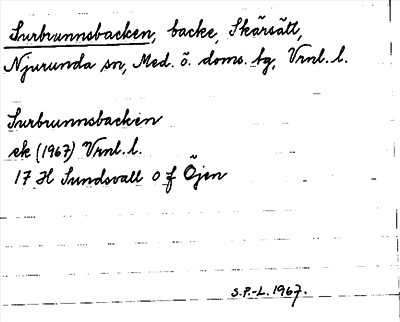 Surbrunnsbacken, backe, Skärsätt,
Njurunda sn, Med. ö. doms. bg, Vrnl. l.
Surbrunnsbacken
ek (1967) Vrnl. l.
17 H Sundsvall 0 f Öjen
S.P.-L. 1967.